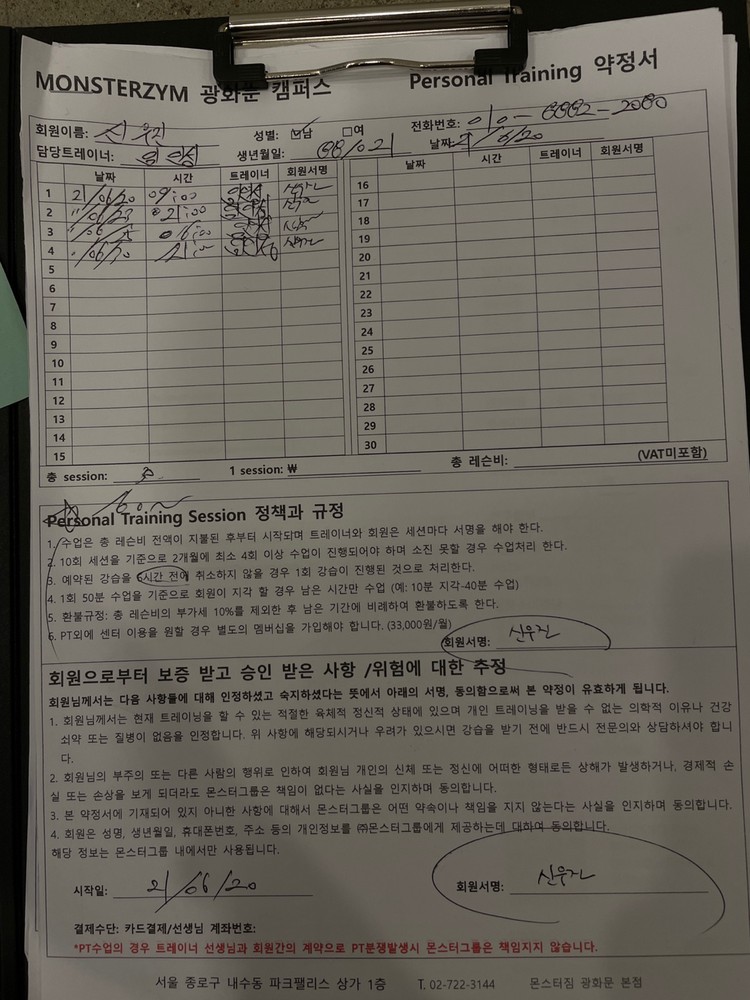 MONSTERZYM 광화문 캠퍼스 Personal Training 약정서
회원이름: 신우진 성별: ☑남 □여 전화번호: 010-
담당트레이너: 생년월일: 날짜: 21/6/20
날짜 시간 트레이너 회원서명 날짜 시간 트레이너 회원서명
1 21/06/20 09:00 16
2 17
3 18
4 19
5 20
6 21
7 22
8 23
9 24
10 25
11 26
12 27
13 28
14 29
15 30
총 session: 30 1 session: ₩ 총 레슨비: (VAT미포함)
Personal Training Session 정책과 규정
1. 수업은 총 레슨비 전액이 지불된 후부터 시작되며 트레이너와 회원은 세션마다 서명을 해야 한다.
2. 10회 세션을 기준으로 2개월에 최소 4회 이상 수업이 진행되어야 하며 소진 못할 경우 수업처리 한다.
3. 예약된 강습을 시간 전에 취소하지 않을 경우 1회 강습이 진행된 것으로 처리한다.
4. 1회 50분 수업을 기준으로 회원이 지각 할 경우 남은 시간만 수업 (예: 10분 지각-40분 수업)
5. 환불규정: 총 레슨비의 부가세 10%를 제외한 후 남은 기간에 비례하여 환불하도록 한다.
6. PT외에 센터 이용을 원할 경우 별도의 멤버십을 가입해야 합니다. (33,000원/월)
회원서명: 신우진
회원으로부터 보증 받고 승인 받은 사항 /위험에 대한 추정
회원님께서는 다음 사항들에 대해 인정하셨고 숙지하셨다는 뜻에서 아래의 서명, 동의함으로써 본 약정이 유효하게 됩니다.
1. 회원님께서는 현재 트레이닝을 할 수 있는 적절한 육체적 정신적 상태에 있으며 개인 트레이닝을 받을 수 없는 의학적 이유나 건강
쇠약 또는 질병이 없음을 인정합니다. 위 사항에 해당되시거나 우려가 있으시면 강습을 받기 전에 반드시 전문의와 상담하셔야 합니
다.
2. 회원님의 부주의 또는 다른 사람의 행위로 인하여 회원님 개인의 신체 또는 정신에 어떠한 형태로든 상해가 발생하거나, 경제적 손
실 또는 손상을 보게 되더라도 몬스터그룹은 책임이 없다는 사실을 인지하며 동의합니다.
3. 본 약정서에 기재되어 있지 아니한 사항에 대해서 몬스터그룹은 어떤 약속이나 책임을 지지 않는다는 사실을 인지하며 동의합니다.
4. 회원은 성명, 생년월일, 휴대폰번호, 주소 등의 개인정보를 ㈜몬스터그룹에게 제공하는데 대하여 동의합니다.
해당 정보는 몬스터그룹 내에서만 사용됩니다.
시작일: 21/06/20 회원서명: 신우진
결제수단: 카드결제/선생님 계좌번호:
*PT수업의 경우 트레이너 선생님과 회원간의 계약으로 PT분쟁발생시 몬스터그룹은 책임지지 않습니다.
서울 종로구 내수동 파크팰리스 상가 1층 T. 02-722-3144 몬스터짐 광화문 본점